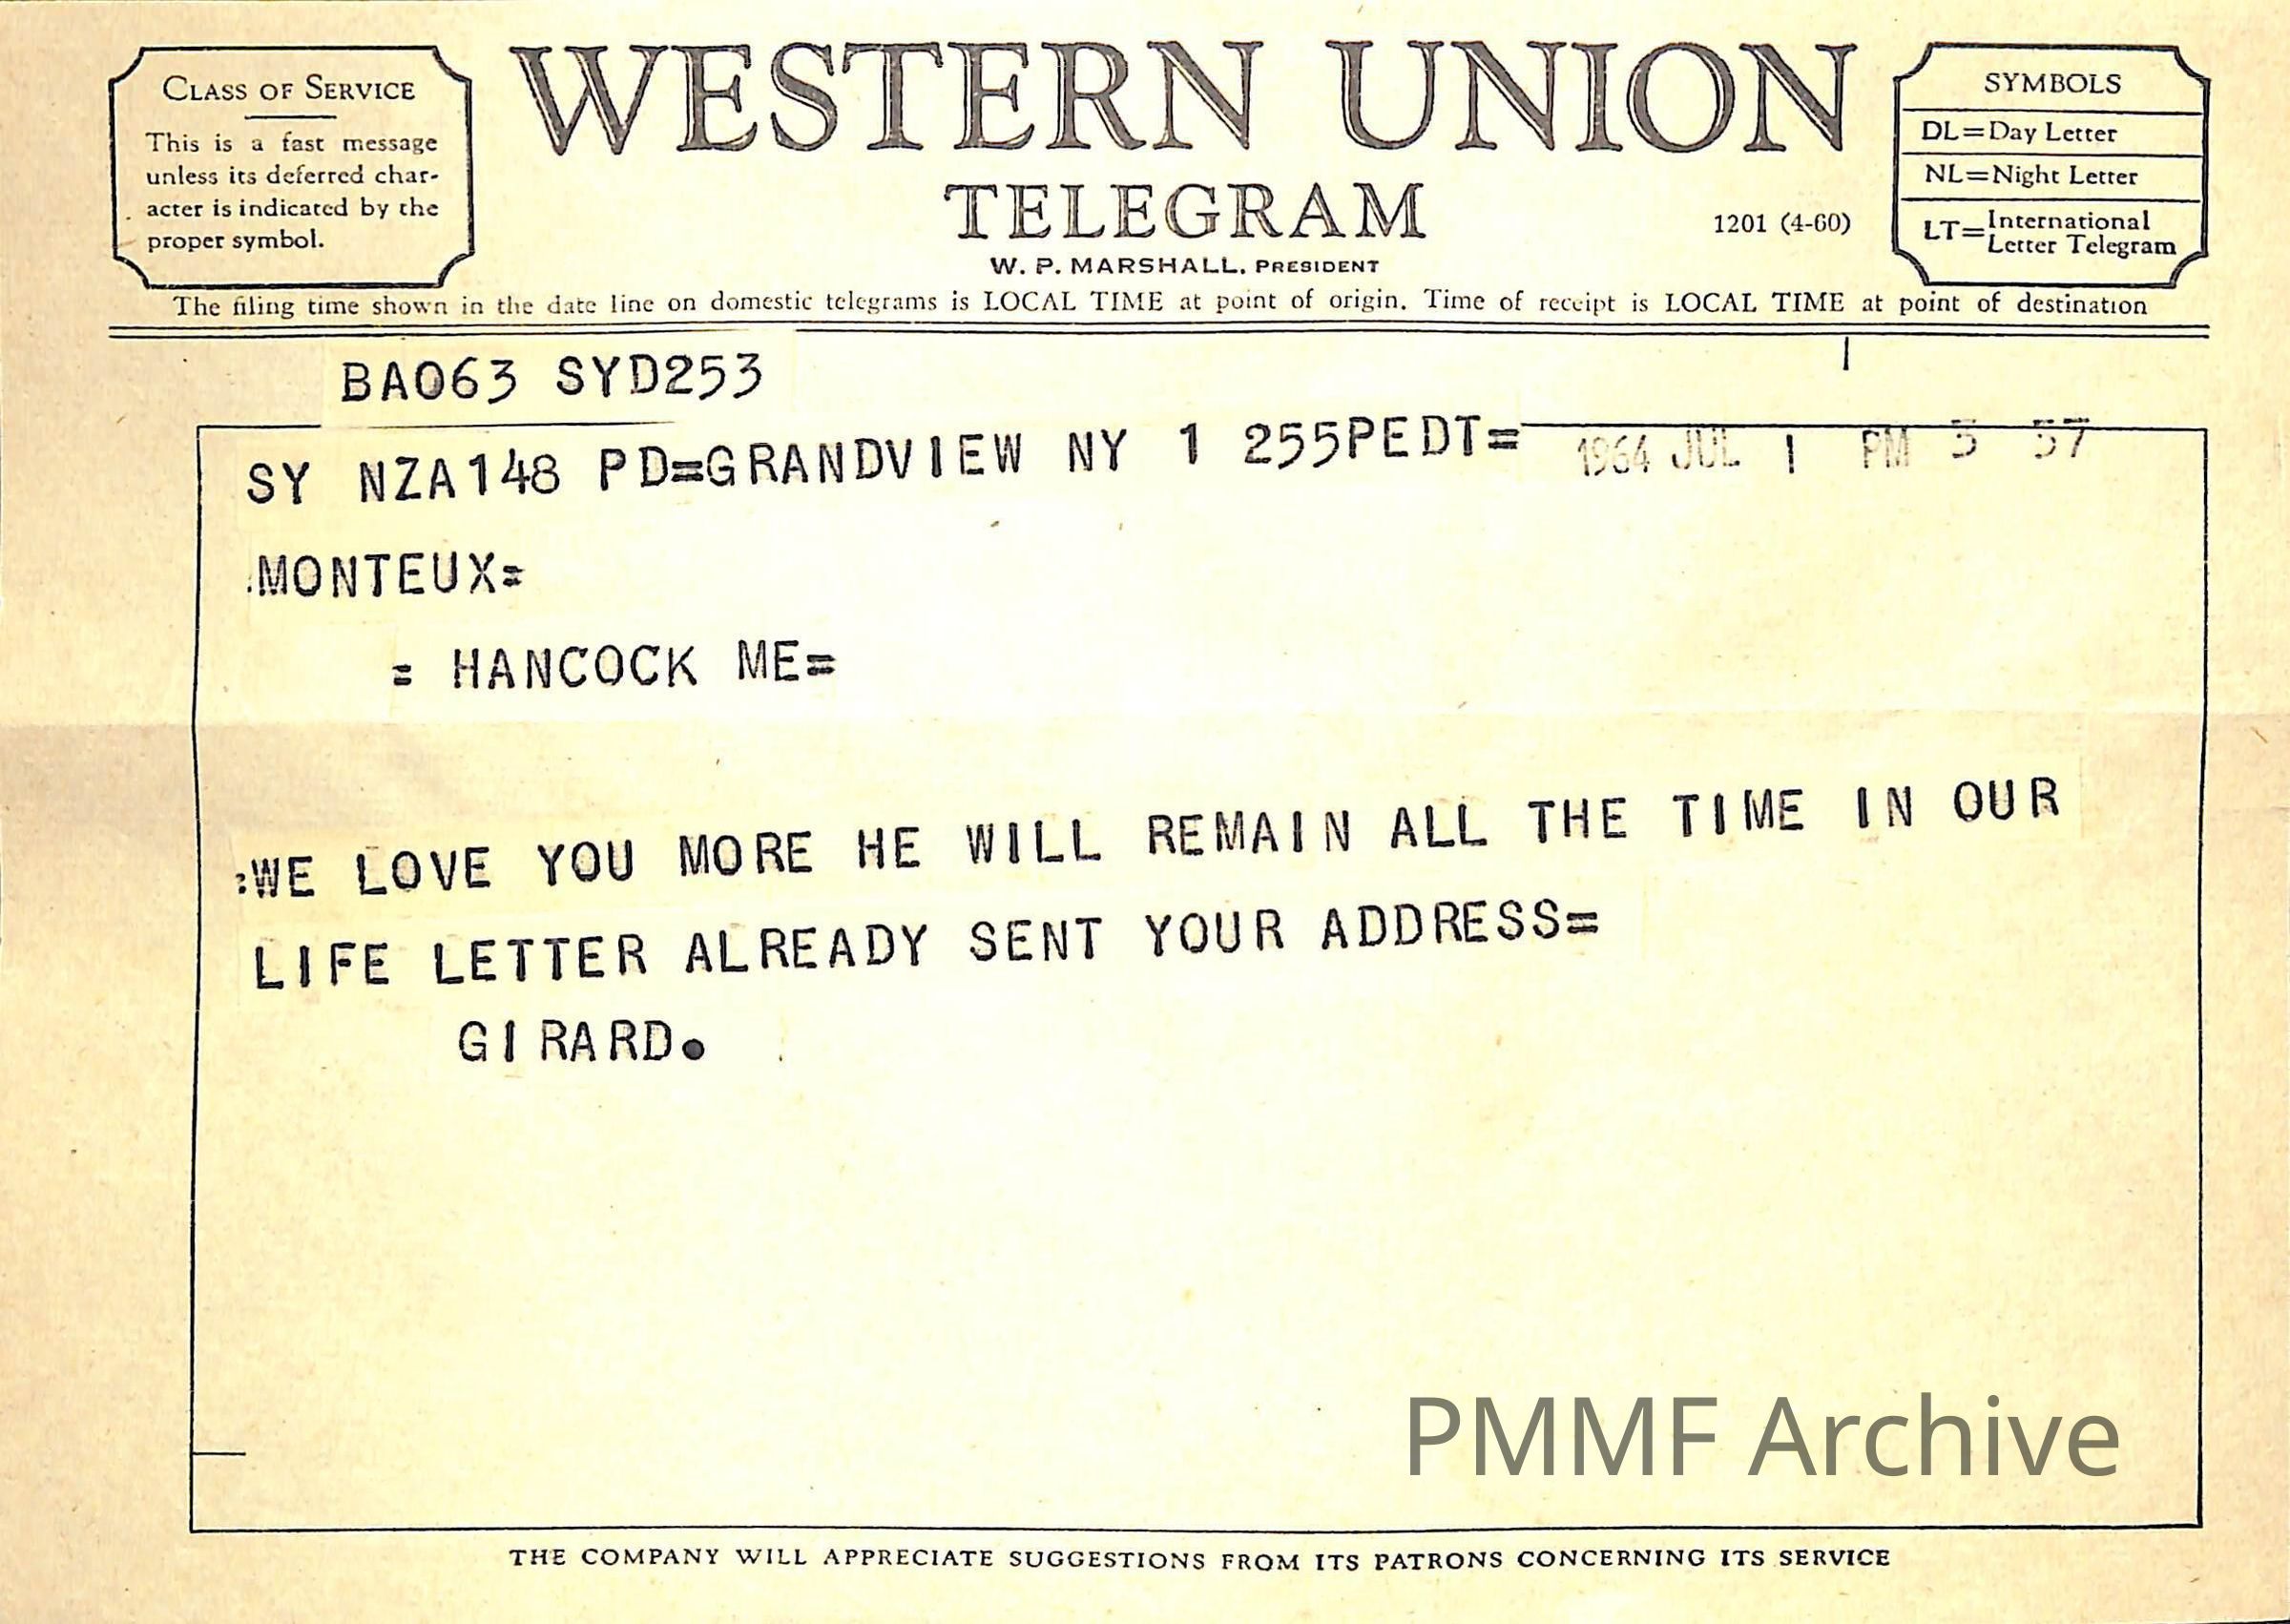 CLASS OF SERVICE
This is a fast message
unless its deferred char-
acter is indicated by the
proper symbol.
WESTERN UNION
TELEGRAM
W. P. MARSHALL, PRESIDENT
1201 (4-60)
SYMBOLS
DL=Day Letter
NL=Night Letter
LT=International
Letter Telegram
The filing time shown in the date line on domestic telegrams is LOCAL TIME at point of origin. Time of receipt is LOCAL TIME at point of destination
BA063 SYD253
SY NZA148 PD=GRANDVIEW NY 1 255PEDT= 1964 JUL 1 PM 5 57
MONTEUX=
= HANCOCK ME=
:WE LOVE YOU MORE HE WILL REMAIN ALL THE TIME IN OUR
LIFE LETTER ALREADY SENT YOUR ADDRESS=
GIRARD.
PMMF Archive
THE COMPANY WILL APPRECIATE SUGGESTIONS FROM ITS PATRONS CONCERNING ITS SERVICE